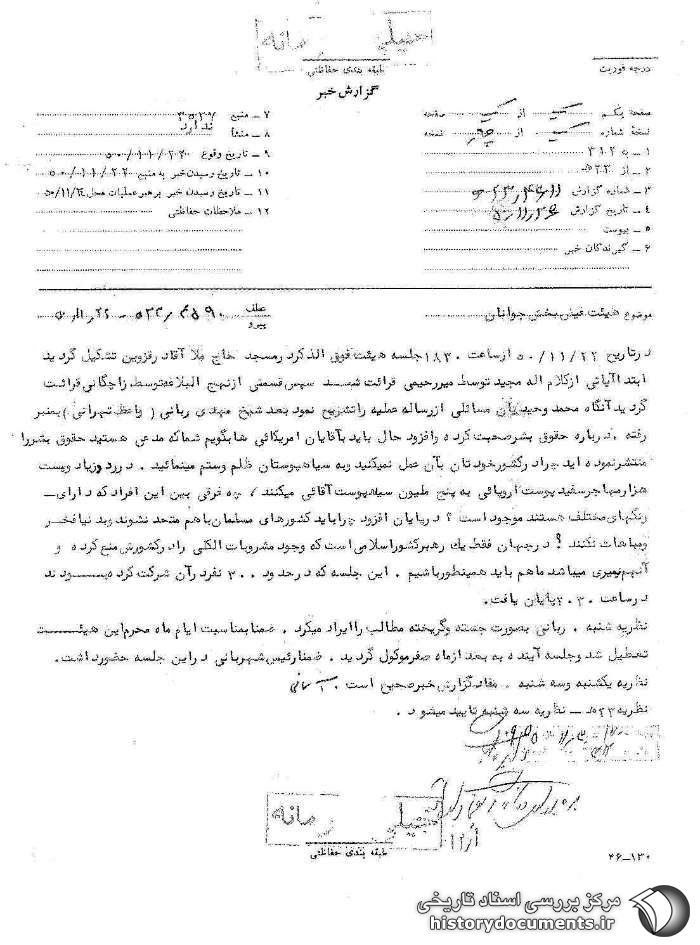 خیلی محرمانه
طبقه بندی حفاظتی
درجه فوریت
گزارش خبر
صفحه یکم از یک صفحه
نسخهٔ شماره یک از چهار نسخه
۱ ــ به ۳۱۲
۲ ــ از ۵۲۳
۳ ــ شماره گزارش
۴ ــ تاریخ گزارش
۵ ــ پیوست
۶ ــ گیرندگان خبر
۷ ــ منبع
۸ ــ منشأ ندارد
۹ ــ تاریخ وقوع
۱۰ ــ تاریخ رسیدن خبر به منبع
۱۱ ــ تاریخ رسیدن خبر برهبر عملیات محل
۱۲ ــ ملاحظات حفاظتی
موضوع هیئت فیض بخش جوانان
عطف
پیرو
درتاریخ ۵۰/۱۱/۲۲ ازساعت ۱۸۳۰ جلسه هیئت فوق الذکر درمسجد حاج ملا آقا در قزوین تشکیل گردید
ابتدا آیاتی ازکلام اله مجید توسط میررحیمی قرائت شد سپس قسمتی ازنهج البلاغه توسط زاجکانی قرائت
گردید آنگاه محمد وحیدیان مسائلی ازرساله عملیه راتشریح نمود بعد شیخ مهدی ربانی ( واعظ تهرانی ) بمنبر
رفته . درباره حقوق بشرصحبت کرده وافزود حال باید بآقایان امریکائی ها بگویم شما که مدعی هستید حقوق بشررا
منتشرنموده اید چرا درکشور خودتان بآن عمل نمیکنید وبه سیاهپوستان ظلم وستم مینمائید . در رودزیا دویست
هزار مهاجر سفید پوست اروپائی به پنج ملیون سیاهپوست آقائی میکنند ، چه فرقی بین این افراد که دارای ــ
رنگهای مختلف هستند موجود است ؟ درپایان افزود چرا باید کشورهای مسلمان باهم متحد نشوند وبه دنیا فخر
ومباهات نکنند ؟ درجهان فقط یك رهبر کشور اسلامی است که وجود مشروبات الکلی را درکشورش منع کرده و
آنهم نمیری میباشد ماهم باید همینطور باشیم . این جلسه که درحدود ۳۰۰ نفر درآن شرکت کرده بودند
درساعت ۲۰۳۰ پایان یافت.
نظریه شنبه . ربانی بصورت جسته وگریخته مطالب را ایراد میکرد . ضمنا بمناسبت ایام ماه محرم این هیئت
تعطیل شد وجلسه آینده به بعد ازماه صفر موکول گردید . ضمنا رئیس شهربانی دراین جلسه حضورداشت.
نظریه یکشنبه وسه شنبه . مفاد گزارش خبر صحیح است .
نظریه ۲۳ ه‍ ــ نظریه سه شنبه تایید میشود .
خیلی محرمانه
طبقه بندی حفاظتی
۴۶-۱۳۰
مرکز بررسی اسناد تاریخی
historydocuments.ir